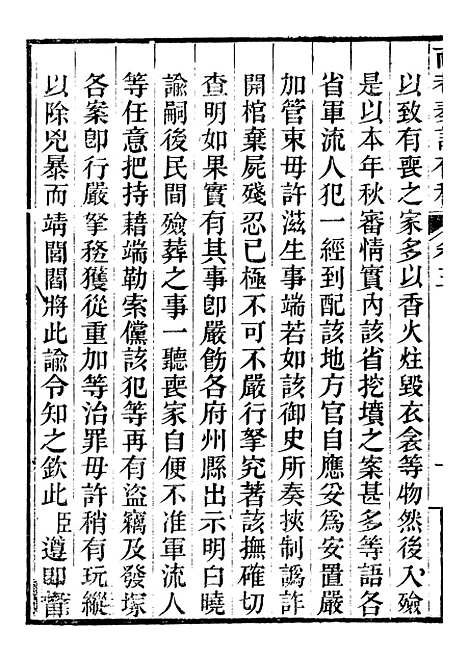 以致有喪之家多以香火炷毀衣衾等物然後入殮
是以本年秋審情實內該省挖墳之案甚多等語各
省軍流人犯一經到配該地方官自應妥爲安置嚴
加管束毋許滋生事端若如該御史所奏挾制譌詐
開棺棄屍殘忍已極不可不嚴行拏究著該撫確切
查明如果實有其事卽嚴飭各府州縣出示明白曉
諭嗣後民間殮葬之事一聽喪家自便不准軍流人
等任意把持藉端勒索儻該犯等再有盜竊及發塚
各案卽行嚴拏務獲從重加等治罪毋許稍有玩縱
以除兇暴而靖閭閻將此諭令知之欽此臣遵卽密